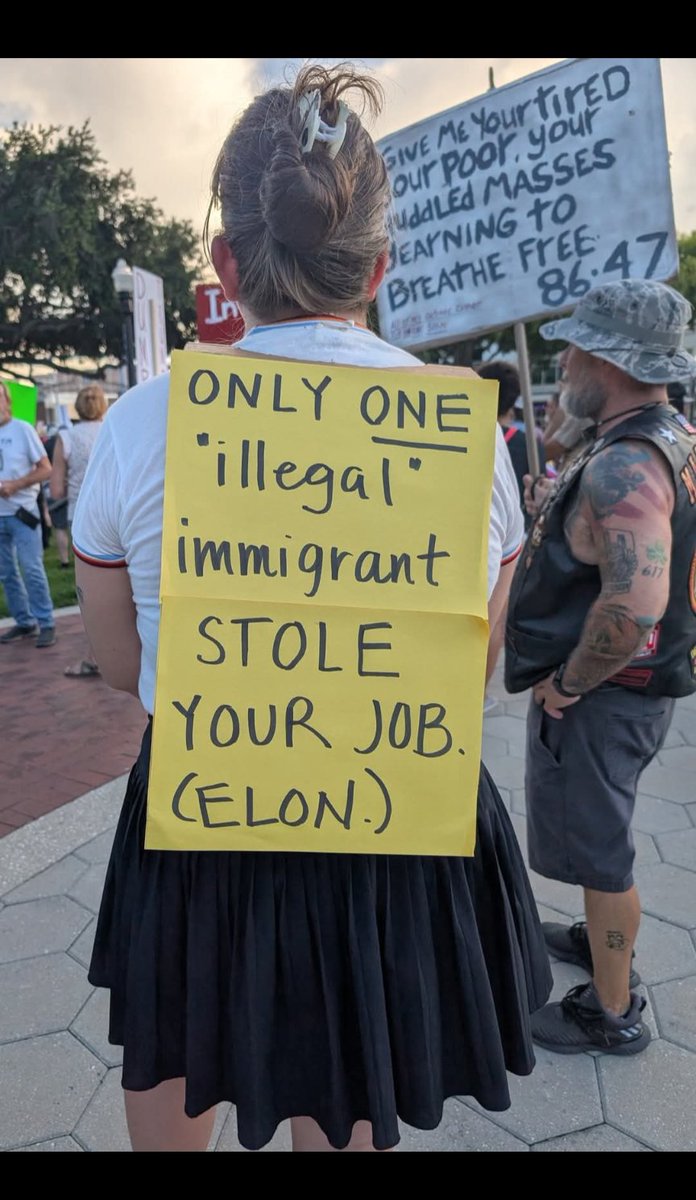 ONLY ONE
"illegal"
immigrant
STOLE
YOUR JOB.
(ELON.)
GIVE ME YOUR TIRED
YOUR POOR, YOUR
HUDDLED MASSES
YEARNING TO
BREATHE FREE.
86·47
617